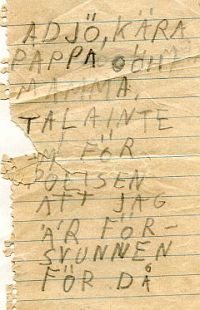 ADJÖ, KÄRA
PAPPA OCH
MAMMA,
TALA INTE
OM FÖR
POLISEN
ATT JAG
ÄR FÖR-
SVUNNEN
FÖR DÅ